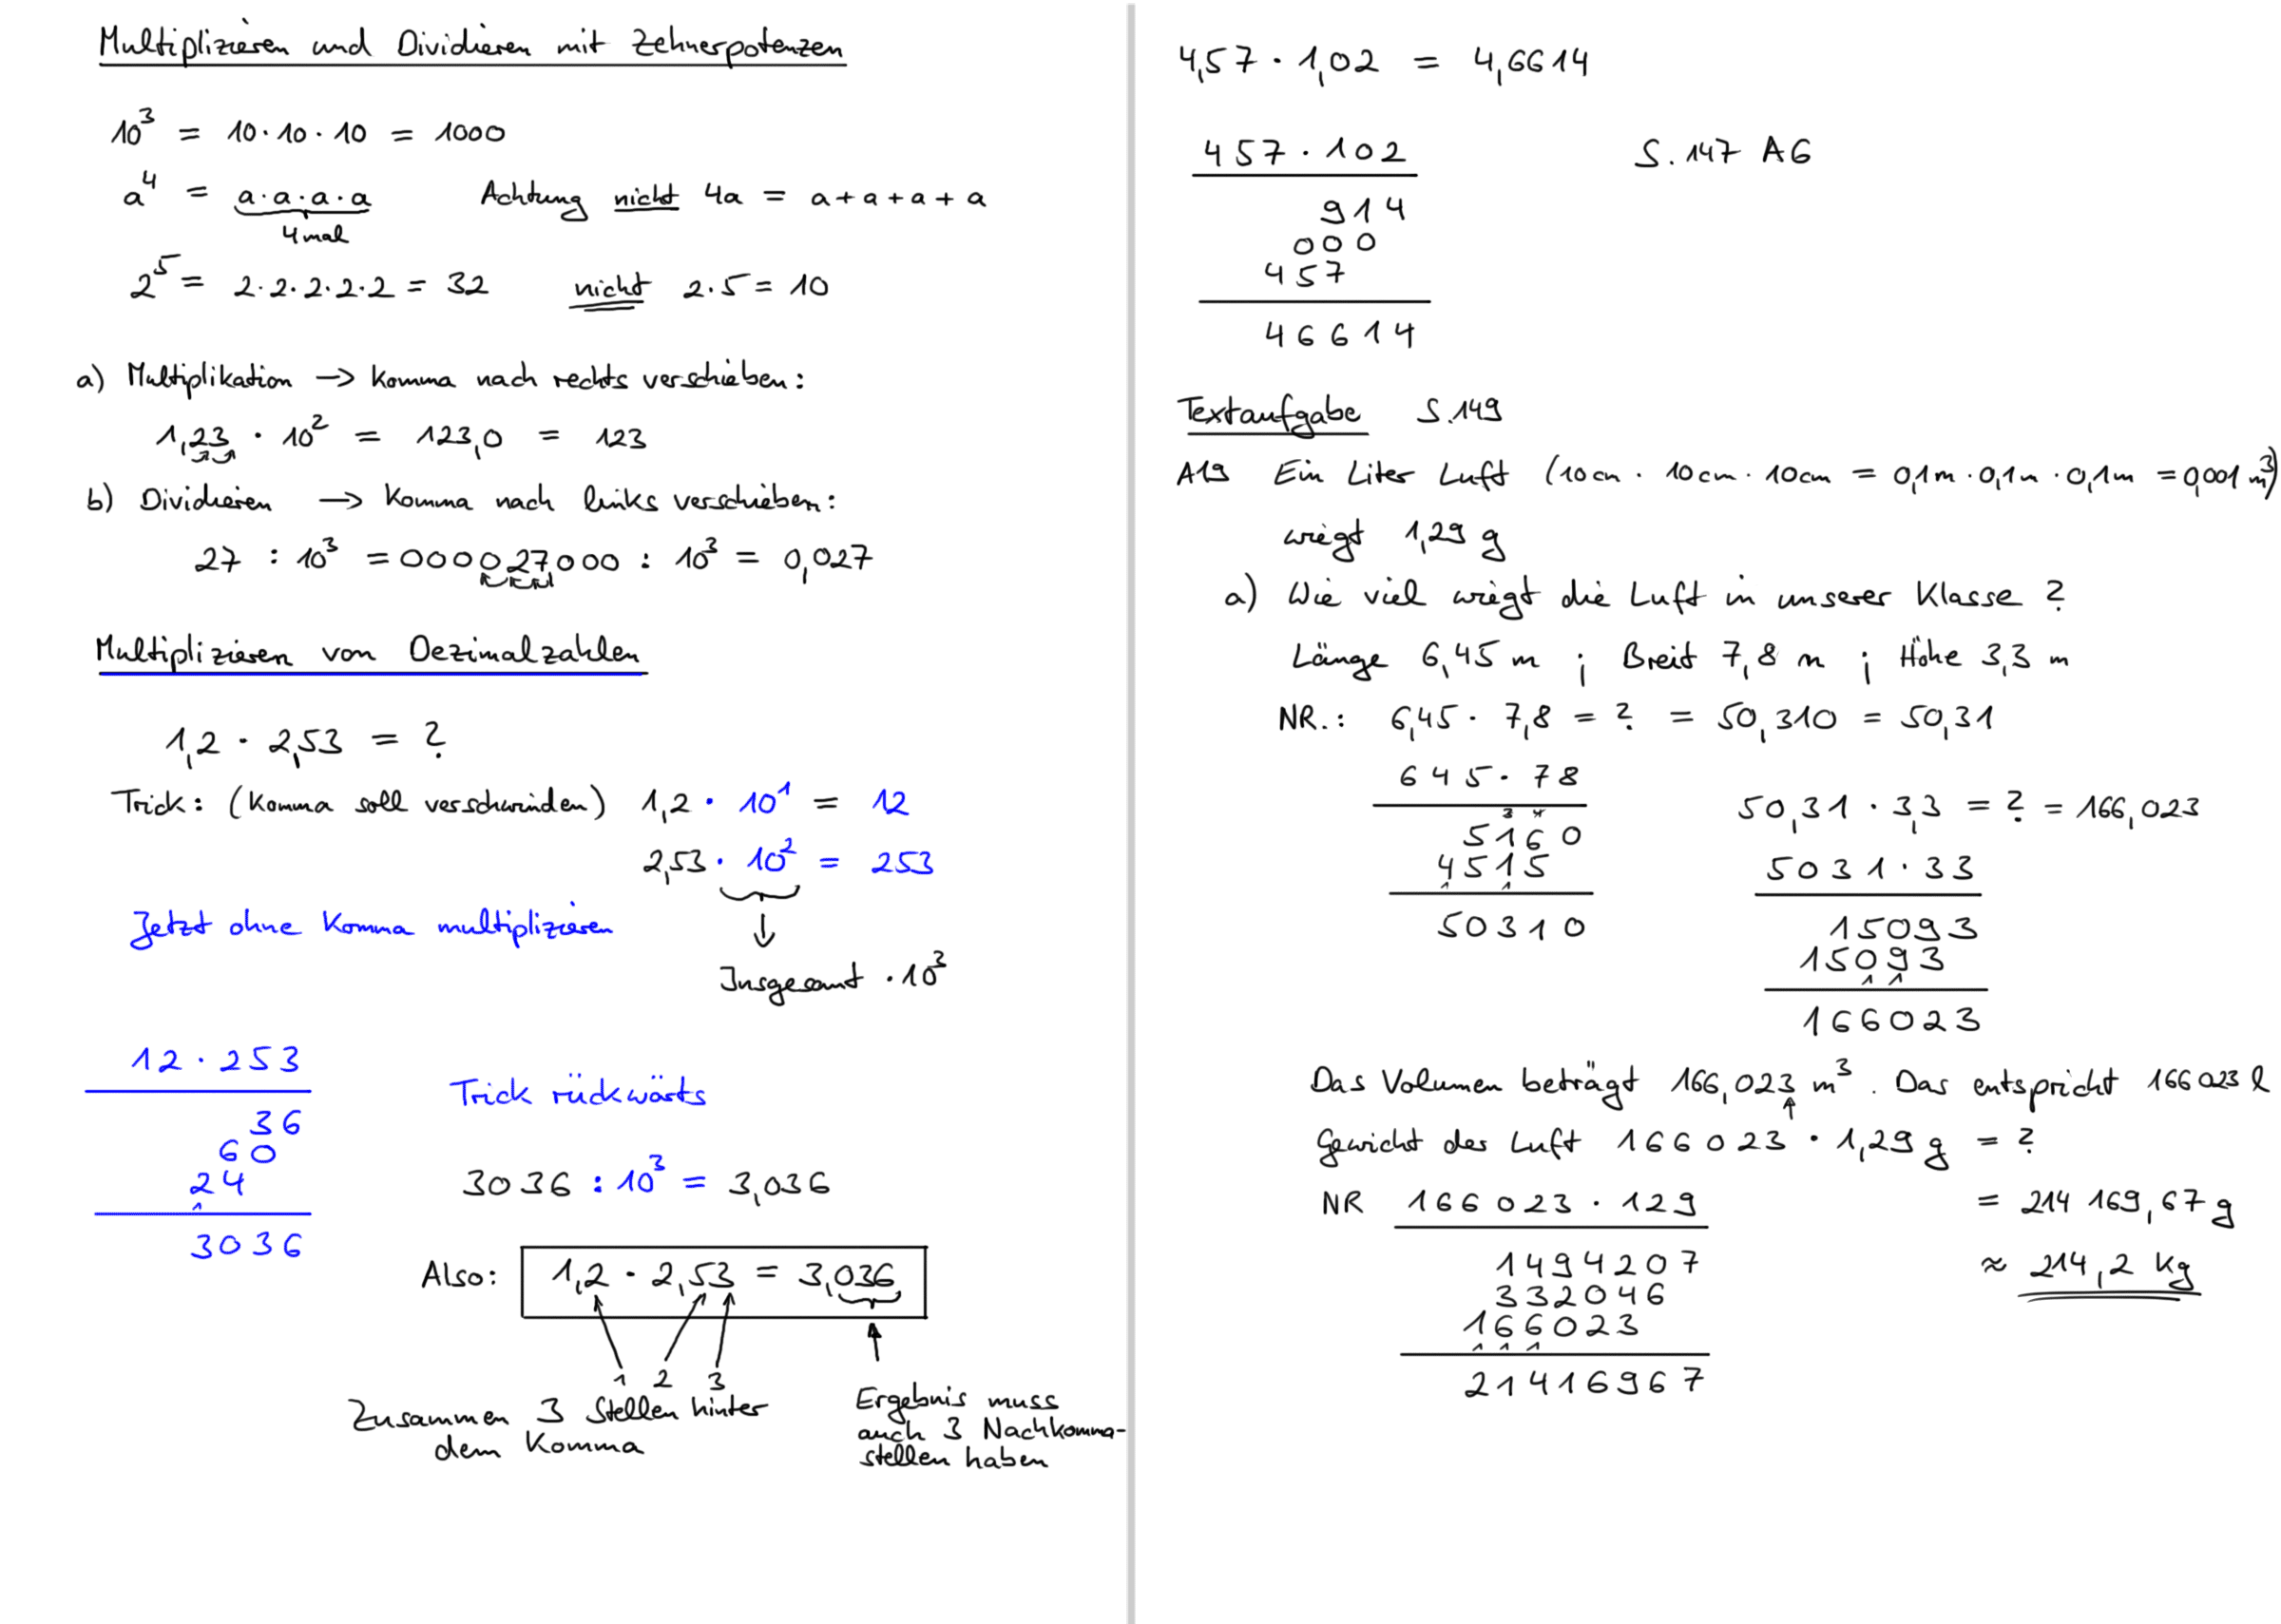 Multiplizieren und Dividieren mit Zehnerpotenzen
10³ = 10·10·10 = 1000
a⁴ = a·a·a·a Achtung nicht 4a = a+a+a+a
4mal
2⁵ = 2·2·2·2·2 = 32 nicht 2·5 = 10
a) Multiplikation → Komma nach rechts verschieben:
1,23 · 10² = 123,0 = 123
b) Dividieren → Komma nach links verschieben:
27 : 10³ = 000027,000 : 10³ = 0,027
Multiplizieren von Dezimalzahlen
1,2 · 2,53 = ?
Trick: (Komma soll verschwinden) 1,2 · 10¹ = 12
2,53 · 10² = 253
Jetzt ohne Komma multiplizieren
Insgesamt ·10³
12 · 253
36
60
24
1
3036
Trick rückwärts
3036 : 10³ = 3,036
Also: 1,2 · 2,53 = 3,036
1 2 3
Zusammen 3 Stellen hinter
dem Komma
Ergebnis muss
auch 3 Nachkomma-
stellen haben
4,57 · 1,02 = 4,6614
457 · 102
914
000
457
46614
S. 147 A6
Textaufgabe S. 149
A19 Ein Liter Luft (10cm · 10cm · 10cm = 0,1m · 0,1m · 0,1m = 0,001 m³)
wiegt 1,29 g
a) Wie viel wiegt die Luft in unserer Klasse ?
Länge 6,45 m ; Breit 7,8 m ; Höhe 3,3 m
NR.: 6,45 · 7,8 = ? = 50,310 = 50,31
645 · 78
3 4
5160
4515
1 1
50310
50,31 · 3,3 = ? = 166,023
5031 · 33
15093
15093
1 1
166023
Das Volumen beträgt 166,023 m³. Das entspricht 166023 l
Gewicht der Luft 166023 · 1,29 g = ?
= 214 169,67 g
≈ 214,2 kg
NR 166 023 · 129
1494207
332046
166023
1 1 1
21416967